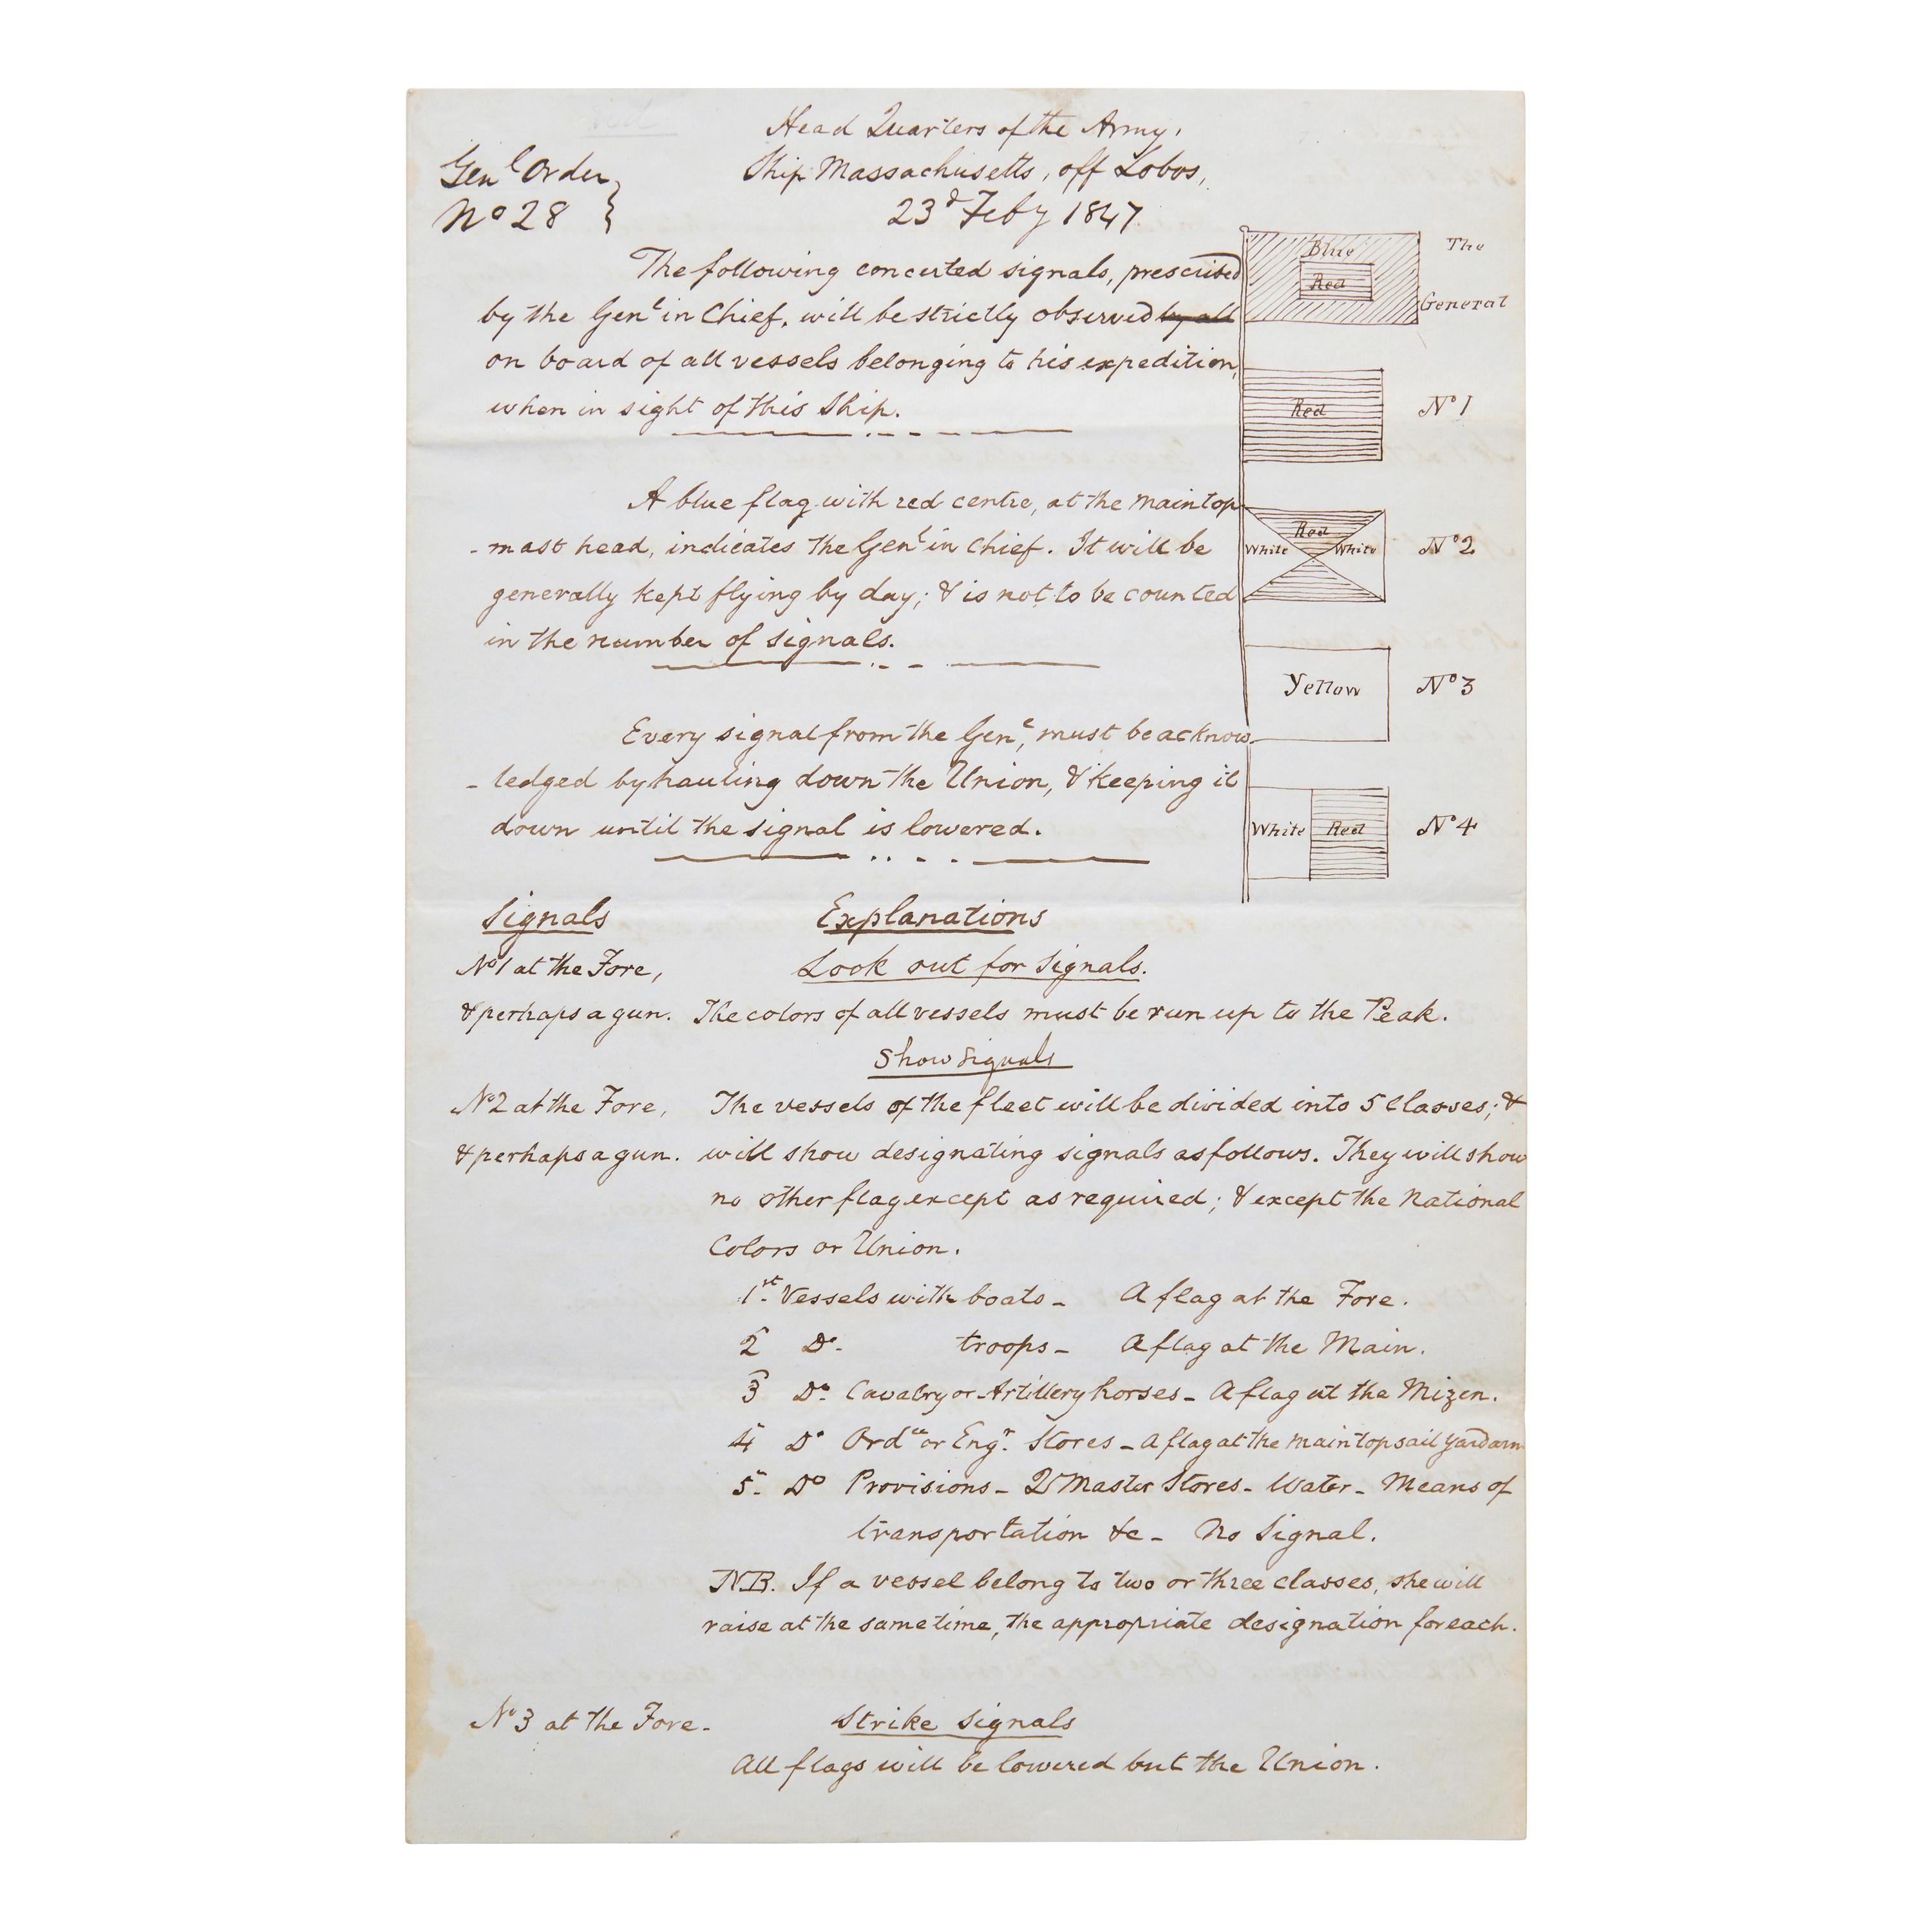 Head Quarters of the Army,
Genl Order
Ship Massachusetts, off Lobos,
No 28
23d Feby 1847.
The following concerted signals, prescribed
by the Genl in Chief, will be strictly observed by all
on board of all vessels belonging to his expedition,
when in sight of this Ship.
Blue
Red
The
General
Red
No 1
A blue flag with red centre, at the main top
- mast head, indicates the Genl in Chief. It will be
generally kept flying by day; & is not to be counted
in the number of signals.
Red
White White
No 2
Yellow
No 3
Every signal from the Genl, must be acknow
- ledged by hauling down the Union, & keeping it
down until the signal is lowered.
White Red
No 4
Signals Explanations
No 1 at the Fore, Look out for Signals.
& perhaps a gun. The colors of all vessels must be run up to the Peak.
Show Signals
No 2 at the Fore, The vessels of the fleet will be divided into 5 Classes; &
& perhaps a gun. will show designating signals as follows. They will show
no other flag except as required; & except the National
Colors or Union.
1st. Vessels with boats - A flag at the Fore.
2 Do. troops - A flag at the Main.
3 Do. Cavalry or Artillery horses - A flag at the Mizen.
4 Do Ordce or Engr. Stores - A flag at the main topsail yard arm
5. Do Provisions - Qr Master Stores - Water - Means of
transportation &c - No Signal.
NB. If a vessel belong to two or three classes, she will
raise at the same time, the appropriate designation for each.
No 3 at the Fore - Strike Signals
All flags will be lowered but the Union.